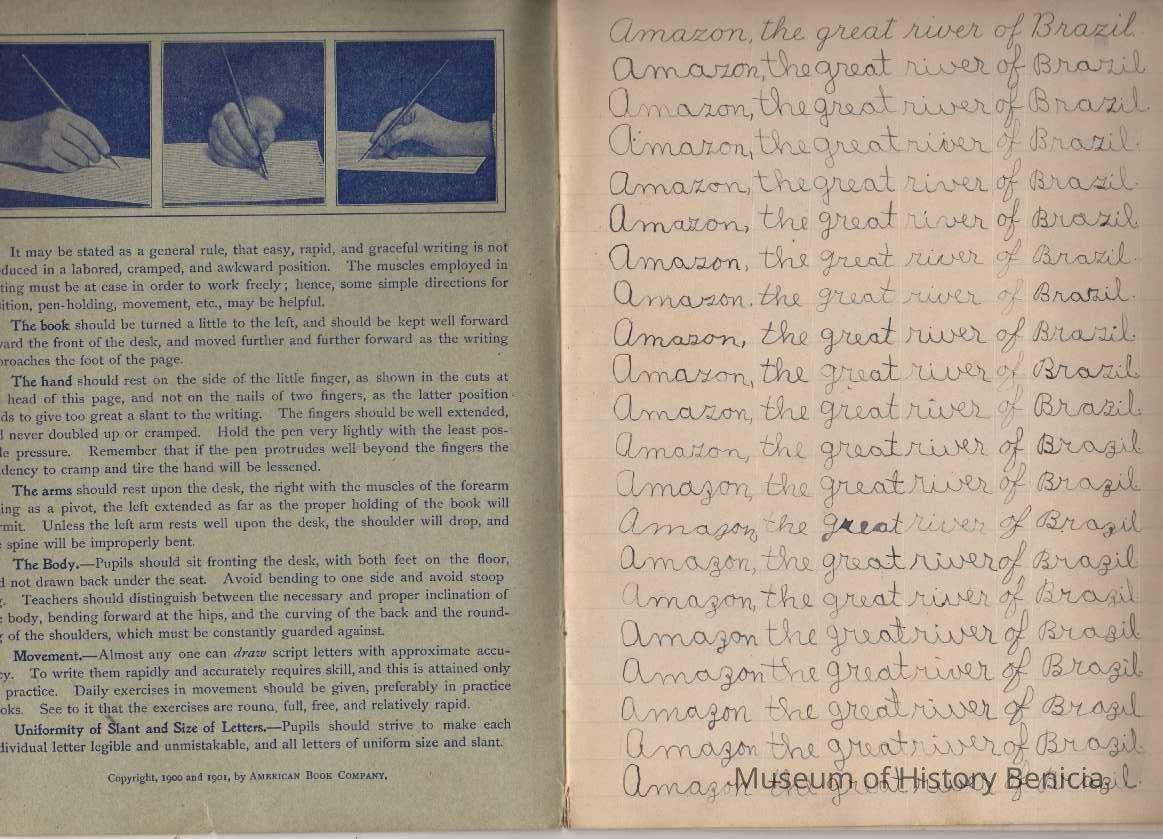 It may be stated as a general rule, that easy, rapid, and graceful writing is not
duced in a labored, cramped, and awkward position. The muscles employed in
ting must be at ease in order to work freely; hence, some simple directions for
ition, pen-holding, movement, etc., may be helpful.
The book should be turned a little to the left, and should be kept well forward
ward the front of the desk, and moved further and further forward as the writing
proaches the foot of the page.
The hand should rest on the side of the little finger, as shown in the cuts at
head of this page, and not on the nails of two fingers, as the latter position
ds to give too great a slant to the writing. The fingers should be well extended,
d never doubled up or cramped. Hold the pen very lightly with the least pos-
le pressure. Remember that if the pen protrudes well beyond the fingers the
dency to cramp and tire the hand will be lessened.
The arms should rest upon the desk, the right with the muscles of the forearm
ing as a pivot, the left extended as far as the proper holding of the book will
rmit. Unless the left arm rests well upon the desk, the shoulder will drop, and
spine will be improperly bent.
The Body.—Pupils should sit fronting the desk, with both feet on the floor,
d not drawn back under the seat. Avoid bending to one side and avoid stoop
g. Teachers should distinguish between the necessary and proper inclination of
body, bending forward at the hips, and the curving of the back and the round-
g of the shoulders, which must be constantly guarded against.
Movement.—Almost any one can draw script letters with approximate accu-
cy. To write them rapidly and accurately requires skill, and this is attained only
practice. Daily exercises in movement should be given, preferably in practice
oks. See to it that the exercises are round, full, free, and relatively rapid.
Uniformity of Slant and Size of Letters.—Pupils should strive to make each
dividual letter legible and unmistakable, and all letters of uniform size and slant.
Copyright, 1900 and 1901, by AMERICAN BOOK COMPANY.
Amazon, the great river of Brazil.
Amazon, the great river of Brazil
Amazon, the great river of Brazil.
Amazon, the great river of Brazil.
Amazon, the great river of Brazil.
Amazon, the great river of Brazil.
Amazon, the great river of Brazil.
Amazon, the great river of Brazil.
Amazon, the great river of Brazil.
Amazon, the great river of Brazil.
Amazon, the great river of Brazil.
Amazon, the great river of Brazil
Amazon, the great river of Brazil
Amazon, the great river of Brazil
Amazon, the great river of Brazil
Amazon, the great river of Brazil
Amazon the great river of Brazil
Amazon the great river of Brazil
Amazon the great river of Brazil
Amazon the great river of Brazil
Amazon the great river of Brazil.
Museum of History Benicia